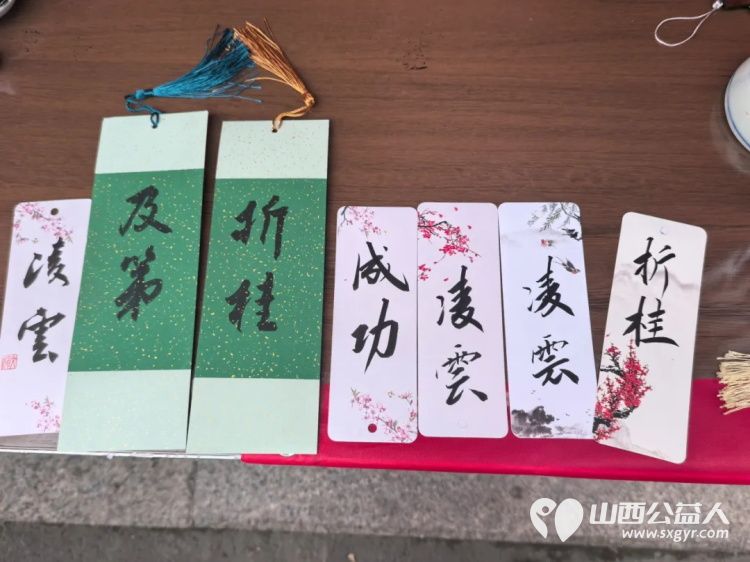 凌雲
及第
折桂
成功
凌雲
凌雲
折桂
山西公益人
www.sxgyr.com